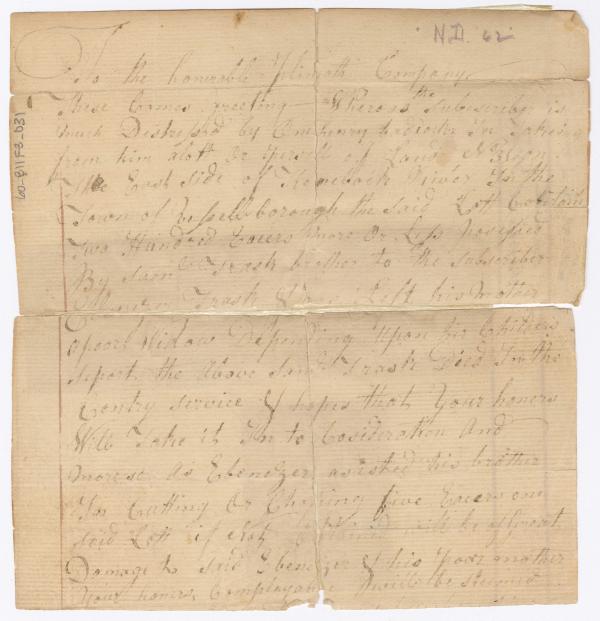 N.D. 62
60-811F8-031
To the honorable Plimoth Company
These Comes greeting Whereas the Subscriber is
much Distressed by One henry In Takeing
from him a lott Or persell of Land
the East Side of River In the
Town of Vassellborough the said Lott Contain
Two Hundred Eacers more Or Less
By Saml Trask brother to the Subscriber
Trask Left his mother
a poor Widow Depending upon his Children
seport the Above Saml Trask Died In the
Contry Service & hopes that Your honers
Will Take it In to Cosideration And
more so As Ebenezer assisted his brother
In Cutting Or Choping five Eacers one
said Lott if Not will be a Great
Damage to Said Ebenezer & his poor mother
Your honers Complyance will be